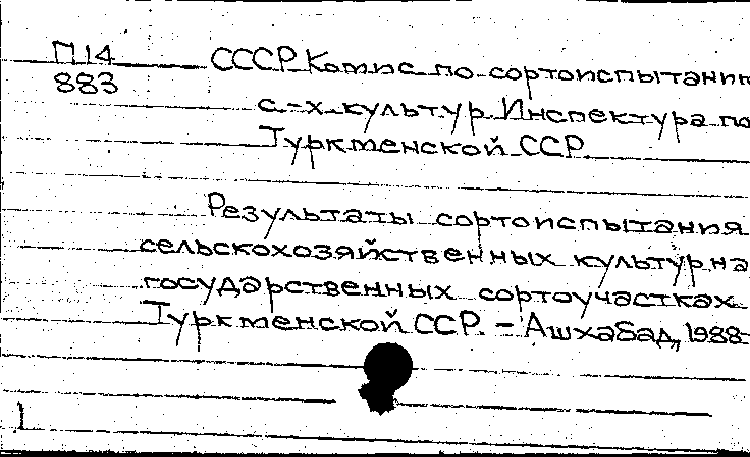 П14 СССР. Комис. по сортоиспытанию
883
с.-х. культур. Инспектура по
Туркменской ССР.
Результаты сортоиспытания
сельскохозяйственных культур на
государственных сортоучастках
Туркменской ССР. – Ашхабад, 1988-